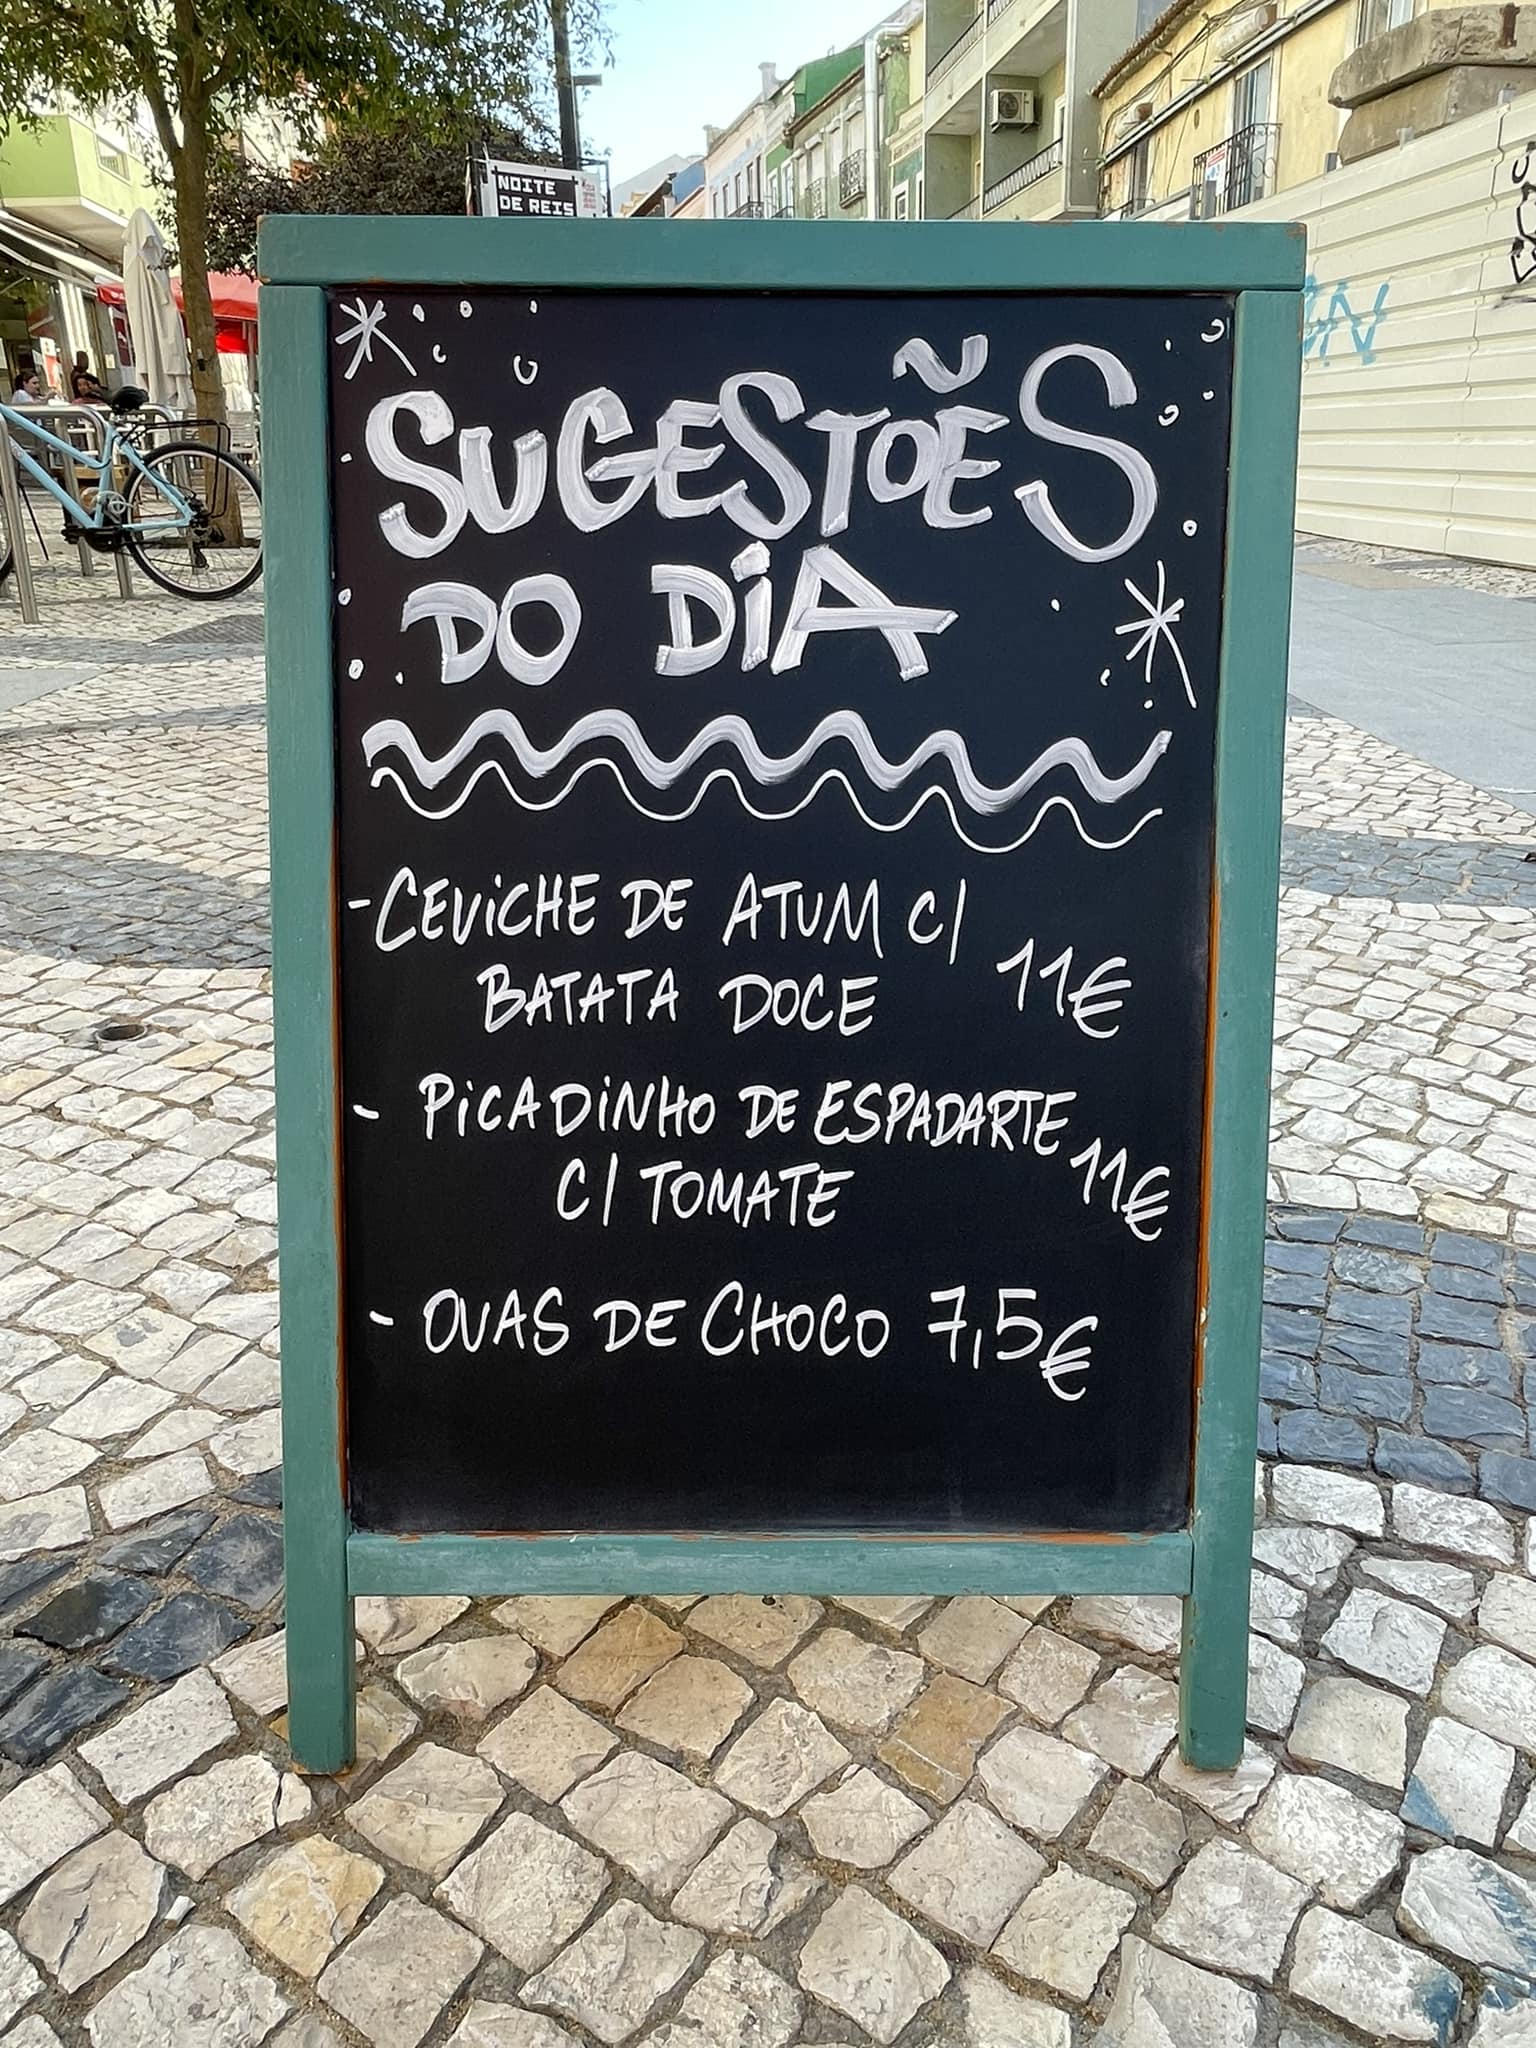 NOITE
DE REIS
SUGESTÕES
DO DIA
- CEVICHE DE ATUM C/
BATATA DOCE 11€
- PICADINHO DE ESPADARTE
C/ TOMATE 11€
- OVAS DE CHOCO 7,5€